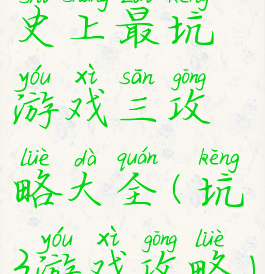 shǐ shàng zuì kēng
史上最坑
yóu xì sān gōng
游戏三攻
lüè dà quán kēng
略大全(坑
yóu xì gōng lüè
游戏攻略)